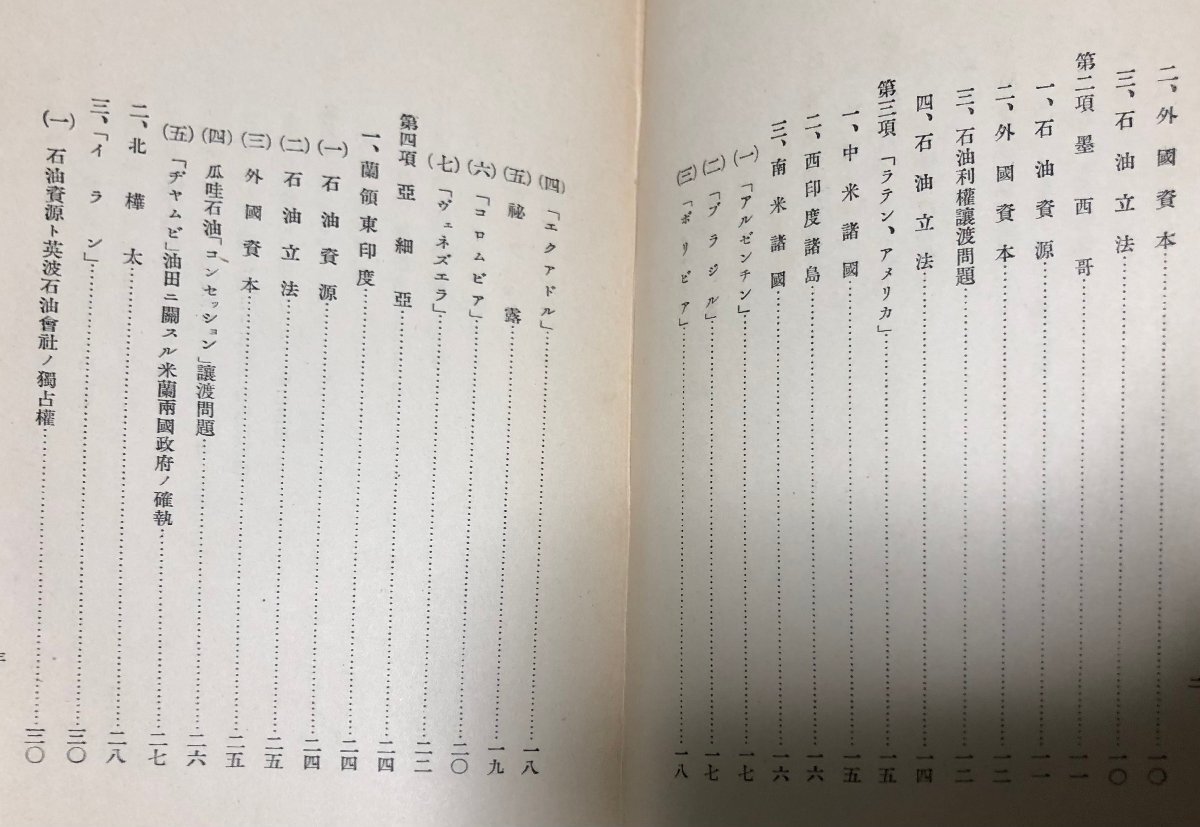 二、外國資本……一〇
三、石油立法……一〇
第二項 墨西哥……一一
一、石油資源……一一
二、外國資本……一二
三、石油利權讓渡問題……一二
四、石油立法……一四
第三項 「ラテン、アメリカ」……一五
一、中米諸國……一五
二、西印度諸島……一六
三、南米諸國……一六
(一)「アルゼンチン」……一七
(二)「ブラジル」……一七
(三)「ボリビア」……一八
二
(四)「エクアドル」……一八
(五)祕露……一九
(六)「コロムビア」……二〇
(七)「ヴェネズエラ」……二二
第四項 亞細亞……二四
一、蘭領東印度……二四
(一)石油資源……二四
(二)石油立法……二五
(三)外國資本……二五
(四)瓜哇石油「コンセッション」讓渡問題……二六
(五)「ヂャムビ」油田ニ關スル米蘭兩國政府ノ確執……二七
二、北樺太……二八
三、「イラン」……三〇
(一)石油資源ト英波石油會社ノ獨占權……三〇
三